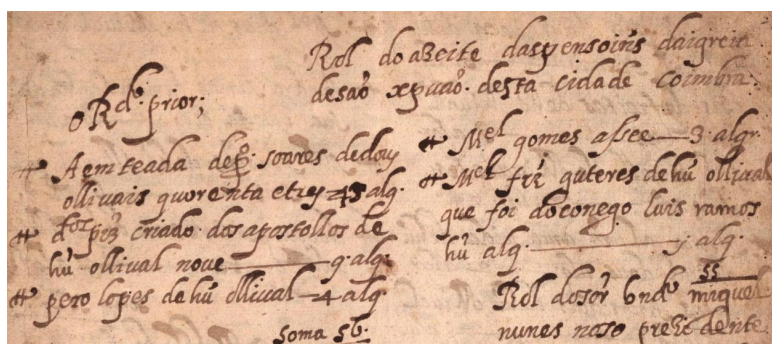 Rol do aZeite das pensoins daigreia
desaõ xpuaõ. desta cidade coimbra.
o Rdo. prior;
A emteada de po. soares dedous
ollivais quorenta etres 43 alq.
dos piz criado dos apostollos de
hũ ollival nove 9. alq.
pero lopes de hũ ollival 4 alq.
soma 56.
Mel gomes asce 3. alqr.
Mel frz guteres de hũ ollival
que foi doconego luis ramos
hũ alq. j alq.
Rol dosor bnde miguel
nunes noso prezidente